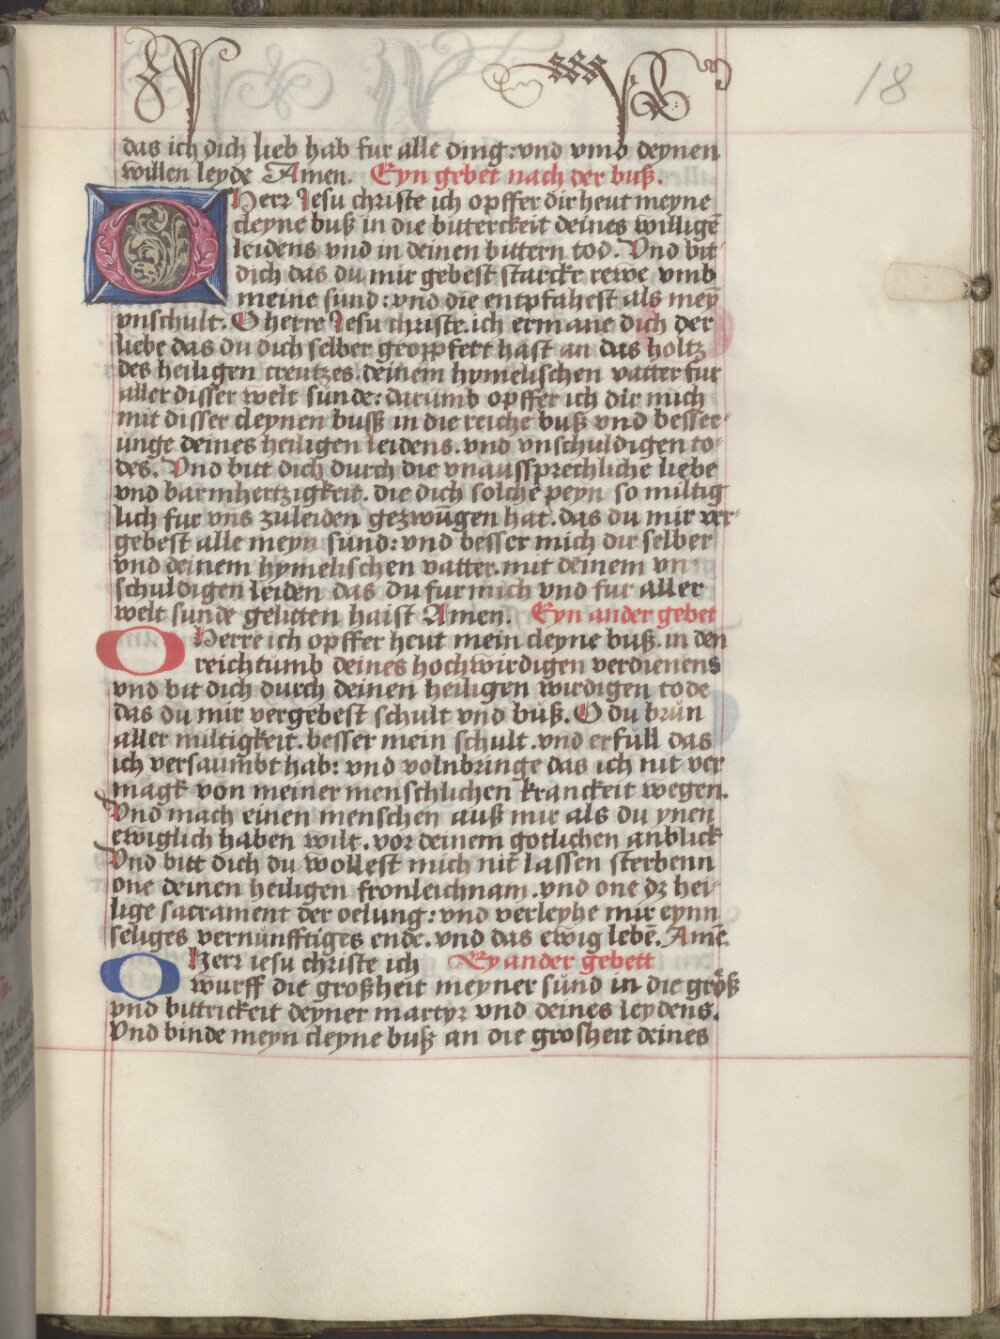 18
das ich dich lieb hab fur alle ding: vnd vmb deynen
willen leyde Amen. Eyn gebet nach der buß.
O Herr Jesu christe ich opffer dir heut meyne
cleyne buß in die bitterckeit deines willigē
leidens vnd in deinen bittern tod. Vnd bit
dich das du mir gebest starcke rewe vmb
meine sund: vnd die entpfahest als meȳ
vnschult. O herre Jesu christe. ich ermane dich der
liebe das du dich selber geopffert hast an das holtz
des heiligen creutzes. deinem hymelischen vatter fur
aller disser welt sunde: darumb opffer ich dir mich
mit disser cleynen buß in die reiche buß vnd besser
unge deines heiligen leidens. vnd vnschuldigen to
des. Vnd bitt dich durch die vnaussprechliche liebe
vnd barmhertzigkeit. die dich solche peyn so miltig
lich fur vns zuleiden gezwūgen hat. das du mir ver
gebest alle meyn sund: vnd besser mich dir selber
vnd deinem hymelischen vatter. mit deinem vn
schuldigen leiden das du fur mich vnd fur aller
welt sunde gelitten haist Amen. Eyn ander gebet
O Herre ich opffer heut mein cleyne buß. in den
reichtumb deines hochwirdigen verdienens
vnd bit dich durch deinen heiligen wirdigen tode
das du mir vergebest schult vnd buß. O du brun
aller miltigkeit. besser mein schult. vnd erfull das
ich versaumbt hab: vnd volnbringe das ich nit ver
magk von meiner menschlichen kranckeit wegen.
Vnd mach einen menschen auß mir als du ynen
ewiglich haben wilt. vor deinem gotlichen anblick
Vnd bitt dich du wollest mich nit lassen sterbenn
one deinen heiligen fronleichnam. vnd one dz hei
lige sacrament der oelung: vnd verleyhe mir eynn
seliges vernunfftiges ende. vnd das ewig lebē. Amē.
O Herr iesu christe ich Ey ander gebett
wurff die großheit meyner sund in die größ
vnd bittrickeit deyner martyr vnd deines leydens.
Vnd binde meyn cleyne buß an die grosheit deines